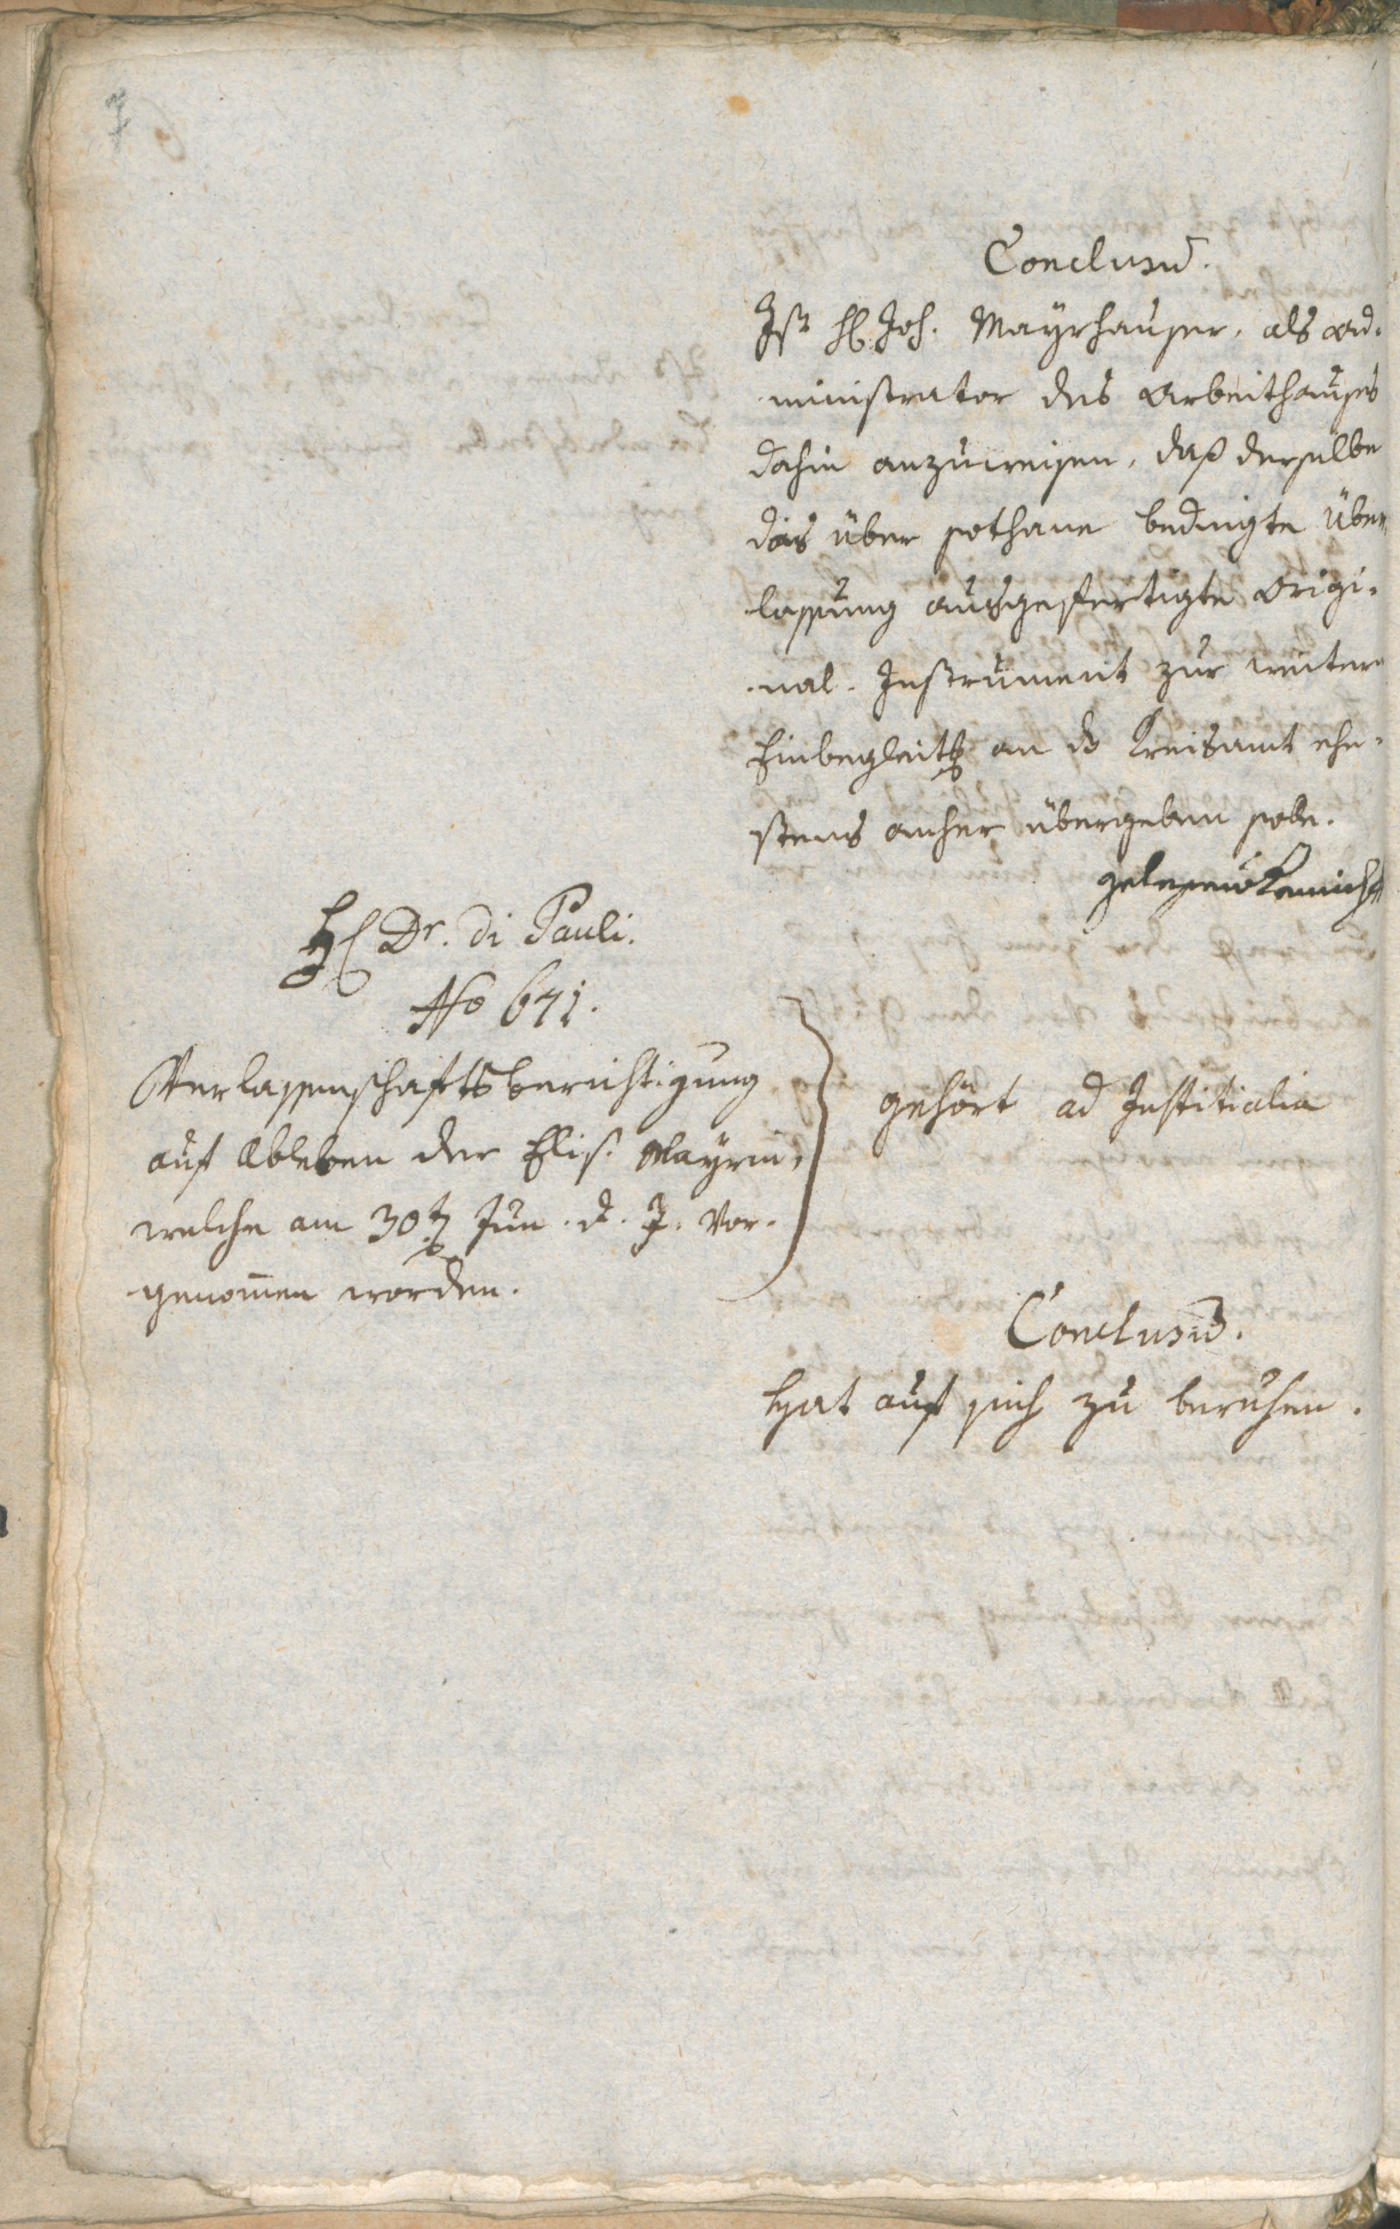 Conclusum.
Ist H. Joh. Mayrhauser, als Ad-
ministrator des Arbeithauses
dahin anzuweisen, daß derselbe
das über sothane bedingte Über-
lassung ausgefertigte Origi-
nal-Instrument zur weitern
Einbegleitg an ds Kreisamt ehe-
stens anher übergeben solle.
gelesen
H. Dr. di Pauli.
No 671.
Verlassenschaftsberichtigung
auf Ableben der Elis. Mayrin,
welche am 30t Jun. d. J. vor-
genommen worden.
gehört ad Justitialia
Conclusum.
Hat auf sich zu beruhen.